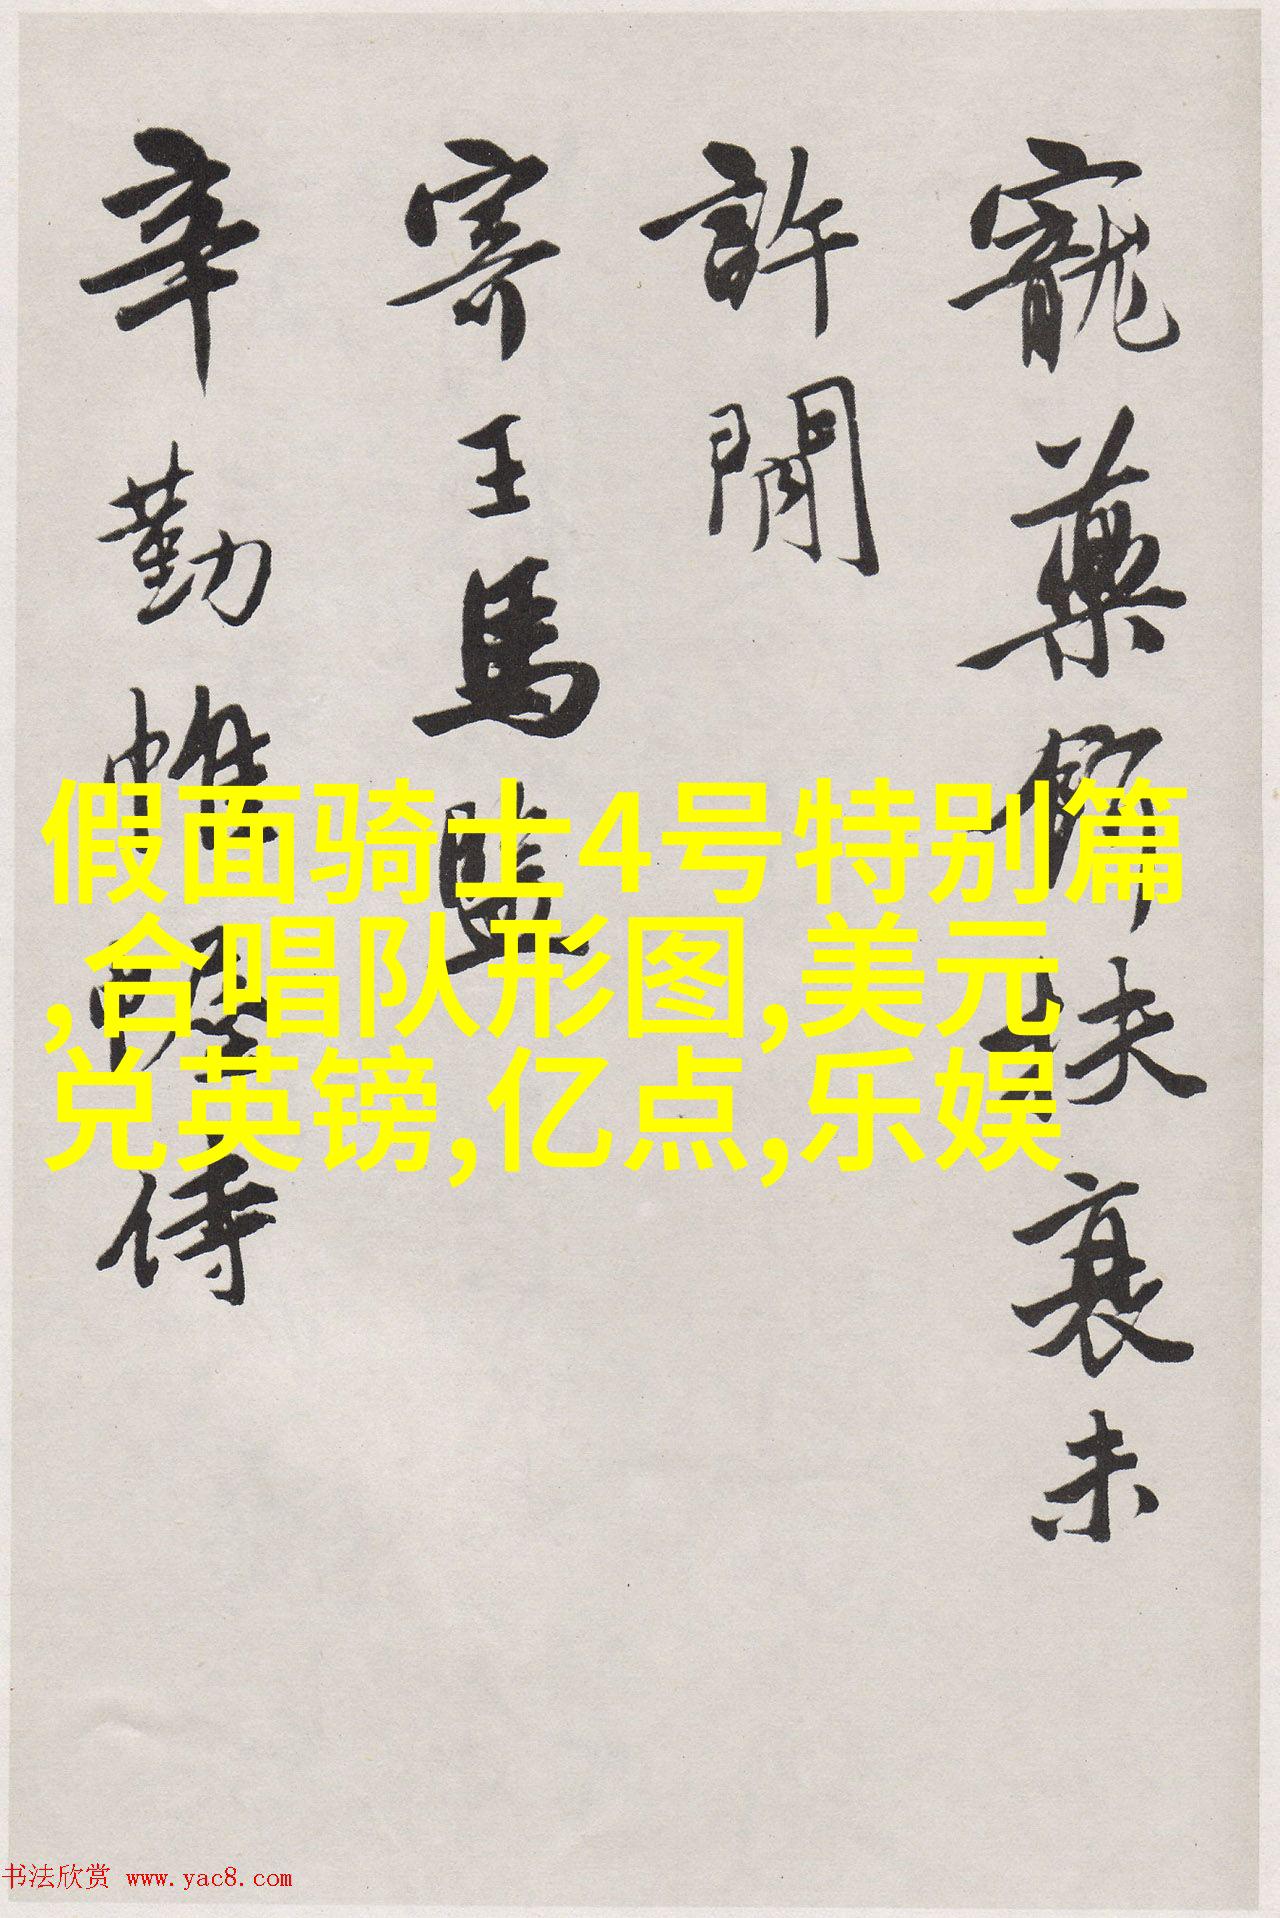 寵藥餌扶衰未
許閒
寄王馬監
辛勤帷幄侍
假面骑士4号特别篇
,合唱队形图,美元
兑英镑,亿点,乐娱
书法欣赏 www.yac8.com